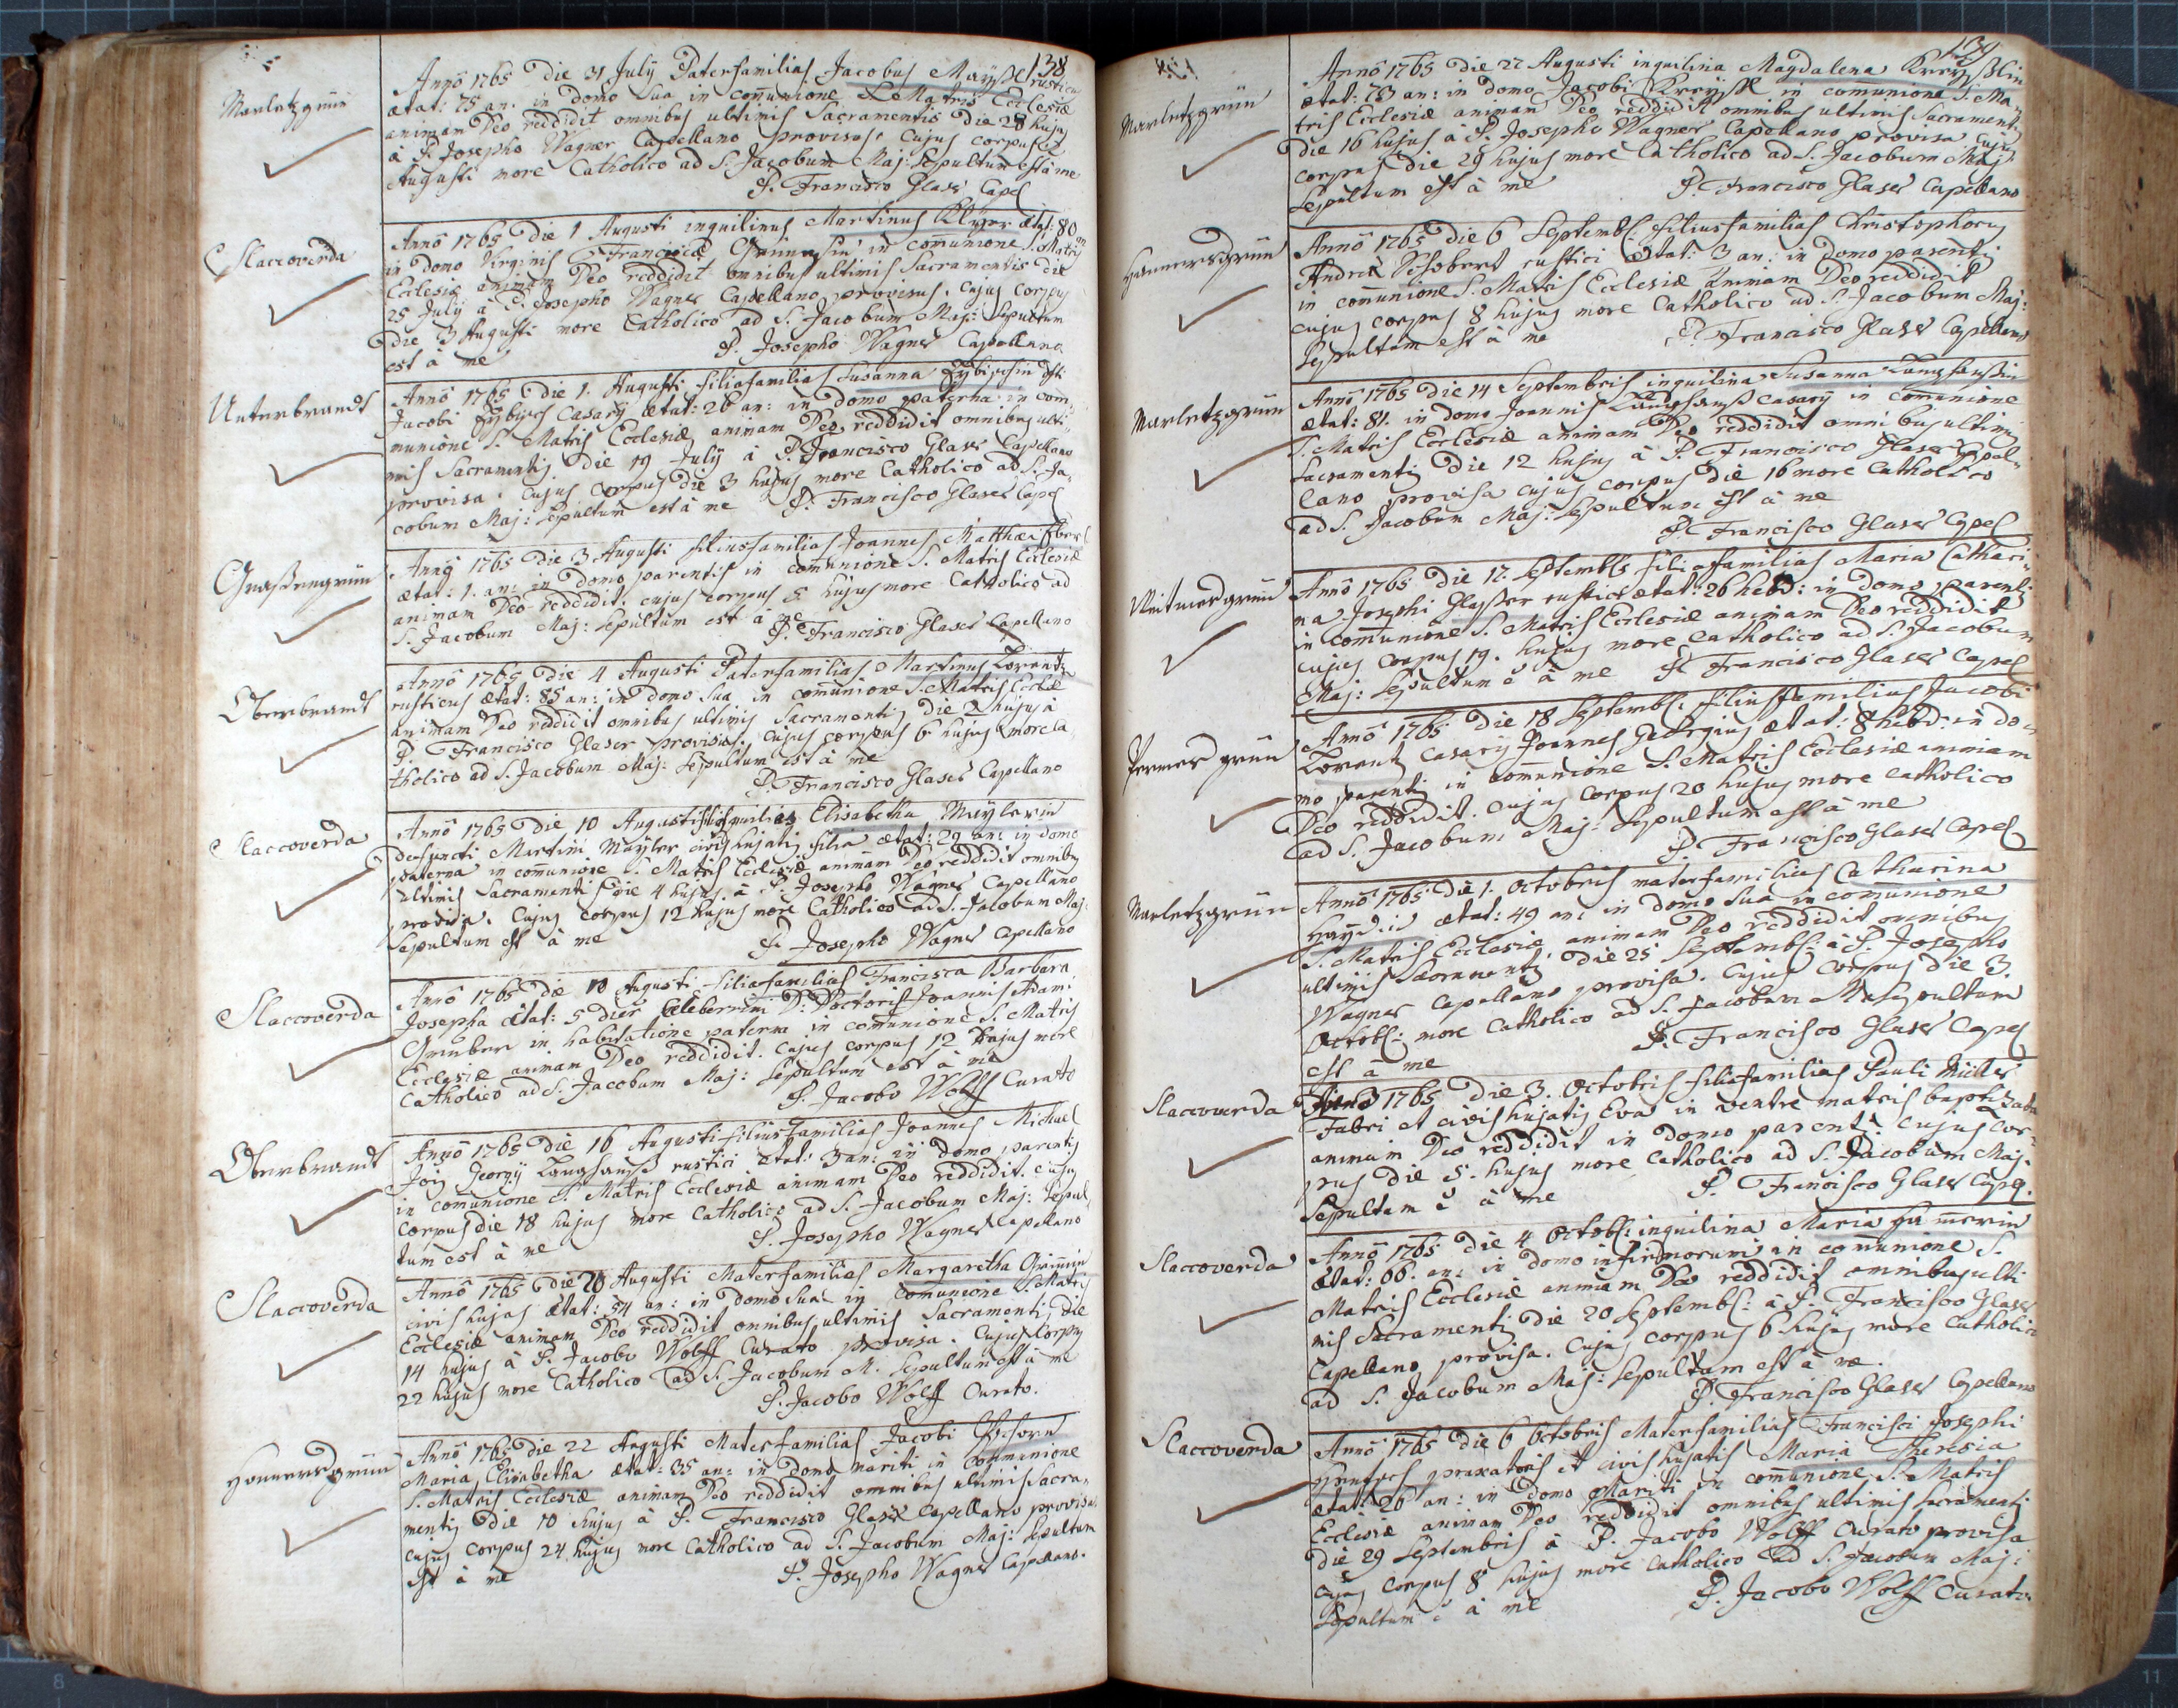 138
Marletzgrün
Anno 1765 Die 31 July Paterfamilias Jacobus Mayßl rusticus
ætat: 75 an. in domo sua in com̄unione S. Matris Ecclesiæ
animam Deo reddidit omnibus ultimis Sacramentis Die 28 hujus
à P. Josepho Wagner Capellano provisus, Cujus corpus 2
Augusti more Catholico ad S. Jacobum Maj: sepultum est à me
P. Francisco Glaser Capel
Slaccoverda
Anno 1765 Die 1 Augusti inquilinus Martinus ætat: 80
in domo Virginis Franciscæ in com̄unione S. Matris
Ecclesiæ animam Deo reddidit omnibus ultimis Sacramentis die
25 July à P. Josepho Wagner Capellano provisus. Cujus Corpus
Die 3 Augusti more Catholico ad S. Jacobum Maj: Sepultum
est à me P. Josepho Wagner Capellano
Unterbrandt
Anno 1765 Die 1. Augusti filiafamilias Susanna
Jacobi Casarij ætat: 26 an: in domo paterna in com
munione S. Matris Ecclesiæ animam Deo reddidit omnibus ulti
mis Sacramentis Die 19 July à P. Francisco Glaser Capellano
provisa. Cujus Corpus Die 3 hujus more Catholico ad S. Ja
cobum Maj: sepultum est à me P. Francisco Glaser Capel
Grasengrün
Anno 1765 Die 3 Augusti filiusfamilias Joannes Matthæi Eberl
ætat: 1. an: in Domo parentis in com̄unione S. Matris Ecclesiæ
animam Deo reddidit, cujus corpus 5 hujus more Catholico ad
S. Jacobum Maj: sepultum est à me
P. Francisco Glaser Capellano
Oberbrandt
Anno 1765 Die 4 Augusti Paterfamilias Martinus Lorentz
rusticus ætat: 85 an: in domo sua in com̄unione S. Matris Eccl̄æ
animam Deo reddidit omnibus ultimis Sacramentis die 2 hujus à
P. Francisco Glaser provisus. Cujus corpus 6 hujus more Ca
tholico ad S. Jacobum Maj: sepultum est à me
P. Francisco Glaser Capellano
Slaccoverda
Anno 1765 Die 10 Augusti Elisabetha Maylerin
defuncti Martini Mayler civis hujatis filia ætat: 29 an: in domo
paterna in com̄unione S. Matris Ecclesiæ animam Deo reddidit omnibus
ultimis Sacramentis die 4 hujus à P. Josepho Wagner Capellano
provisa. Cujus corpus 12 hujus more Catholico ad S. Jacobum Maj
Sepultum est à me P. Josepho Wagner Capellano
Slaccoverda
Anno 1765 die 10 Augusti filiafamilias Francisca Barbara
Josepha ætat: 5 dier Celeberrimi D: Doctoris Joannis Adami
Gruber in habitatione paterna in com̄unione S. Matris
Ecclesiæ animam Deo reddidit. Cujus corpus 12 hujus more
Catholico ad S. Jacobum Maj: sepultum est à me
P. Jacobo Wolff Curato
Oberbrandt
Anno 1765 Die 16 Augusti filiusfamilias Joannes Michael
Jois Georgij Langhanß rustici ætat: 3 an: in domo parentis
in com̄unione S. Matris Ecclesiæ animam Deo reddidit. Cujus
Corpus die 18 hujus more Catholico ad S. Jacobum Maj: sepul
tum est à me P. Josepho Wagner Capellano
Slaccoverda
Anno 1765 Die 20 Augusti Materfamilias Margaretha Grim̄in
civis hujas ætat: 54 an: in domo sua in Com̄unione S. Matris
Ecclesiæ animam Deo reddidit omnibus ultimis Sacramentis die
14 hujus à P. Jacobo Wolff Curato provisa. Cujus Corpus
22 hujus more Catholico ad S. Jacobum M. Sepultum est à me
P. Jacobo Wolff Curato.
Honnersgrün
Anno 1765 Die 22 Augusti Materfamilias Jacobi
Maria Elisabetha ætat: 35 an: in domo mariti in Com̄unione
S. Matris Ecclesiæ animam Deo reddidit omnibus ultimis Sacra
mentis Die 10 hujus à P. Francisco Glaser Capellano provisa
cujus corpus 24 hujus more Catholico ad S. Jacobum Maj: sepultum
est à me P. Josepho Wagner Capellano.
139
Marletzgrün
Anno 1765 Die 27 Augusti inquilina Magdalena Kreyßlin
ætat: 73 an: in domo Jacobi Kreyßl in com̄unione S. Ma
tris Ecclesiæ animam Deo reddidit omnibus ultimis Sacramentis
Die 16 hujus à P. Josepho Wagner Capellano provisa Cujus
corpus die 29 hujus more Catholico ad S. Jacobum Maj:
Sepultum est à me P. Francisco Glaser Capellano
Honnersgrün
Anno 1765 die 6 Septembr. filiusfamilias Christophorus
Andreæ Schobert rustici ætat: 3 an: in domo parentis
in com̄unione S. Matris Ecclesiæ Animam Deo reddidit
cujus corpus 8 hujus more Catholico ad S. Jacobum Maj:
sepultum est à me P. Francisco Glaser Capellano
Marletzgrün
Anno 1765 Die 14 Septembris inquilina Susanna Langhanßin
ætat: 81. in domo Joannis Langhanß Casarij in Com̄unione
S. Matris Ecclesiæ animam Deo reddidit omnibus ultimis
Sacramentis Die 12 hujus à P. Francisco Glaser Capel
lano provisa cujus corpus die 16 more Catholico
ad S. Jacobum Maj: sepultum est à me
P. Francisco Glaser Capel
Anno 1765 Die 17. Septembris filiafamilias Maria Cathari
na Josephi Glaßer rustici ætat: 26 hebd: in domo parentis
in com̄unione S. Matris Ecclesiæ animam Deo reddidit
cujus corpus 19. hujus more Catholico ad S. Jacobum
Maj: sepultum ē à me P. Francisco Glaser Capel
Anno 1765 Die 18 Septembr. filiusfamilias Jacobi
Lorentz Casarij Joannes Georgius ætat: 8 hebd: in do
mo parentis in com̄unione S. Matris Ecclesiæ animam
Deo reddidit. Cujus corpus 20 hujus more Catholico
ad S. Jacobum Maj: Sepultum est à me
P. Francisco Glaser Capel
Marletzgrün
Anno 1765 Die 1. Octobris materfamilias Catharina
ætat: 49 an: in domo sua in com̄unione
S. Matris Ecclesiæ animam Deo reddidit omnibus
ultimis Sacramentis Die 25 Septembr: à P. Josepho
Wagner Capellano provisa. Cujus corpus die 3.
Octobr: more Catholico ad S. Jacobum Maj sepultum
est à me P. Francisco Glaser Capel
Slaccoverda
Anno 1765 Die 3. Octobris filiafamilias Pauli Müller
Fabri et civis hujatis Eva in ventre matris baptizata
animam Deo reddidit in domo parentis cujus cor
pus die 5. hujus more Catholico ad S. Jacobum Maj.
sepultum ē à me P. Francisco Glaser Capel.
Slaccoverda
Anno 1765 Die 4 Octobr: inquilina Maria Ham̄erin
ætat: 66. an: in domo infirmorum in com̄unione S.
Matris Ecclesiæ animam Deo reddidit omnibus ulti
mis Sacramentis Die 20 Septembr: à P. Francisco Glaser
Capellano provisa. Cujus corpus 6 hujus more Catholico
ad S. Jacobum Maj: sepultum est à me.
P. Francisco Glaser Capellano
Slaccoverda
Anno 1765 Die 6 Octobris Materfamilias Francisci Josephi
praxatoris et civis hujatis Maria Theresia
ætat: 26 an: in Domo Mariti in com̄unione S. Matris
Ecclesiæ animam Deo reddidit omnibus ultimis sacramentis
Die 29 Septembris à P. Jacobo Wolff Curato provisa
Cujus corpus 8 hujus more Catholico ad S. Jacobum Maj:
sepultum ē à me P. Jacobo Wolff Curato